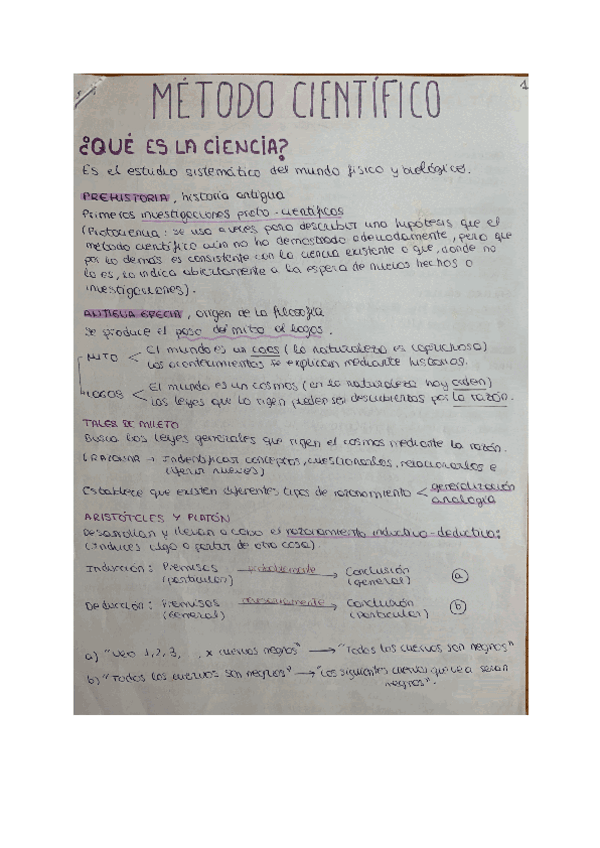 1
MÉTODO CIENTÍFICO
¿QUÉ ES LA CIENCIA?
Es el estudio sistemático del mundo físico y biológico.
PREHISTORIA, historia antigua
Primeras investigaciones proto-científicas
(Protociencia: se usa a veces para describir una hipótesis que el
método científico aún no ha demostrado adecuadamente, pero que
por lo demás es consistente con la ciencia existente o que, donde no
lo es, lo indica a la espera de nuevos hechos o
investigaciones).
ANTIGUA GRECIA, origen de la filosofía
Se produce el paso del mito al logos.
MITO < El mundo es un caos (la naturaleza es caprichosa)
Los acontecimientos se explican mediante historias.
LOGOS < El mundo es un cosmos (en la naturaleza hay orden)
Las leyes que lo rigen pueden ser descubiertas por la razón.
TALES DE MILETO
Busca las leyes generales que rigen el cosmos mediante la razón.
→ Indentificar conceptos, cuestionarlos, relacionarlos e
(inferir nuevos)
Establece que existen diferentes tipos de razonamiento < generalización
analogía
ARISTÓTELES Y PLATÓN
Desarrollan y llevan a cabo el razonamiento inductivo-deductivo:
(induces algo a partir de otra cosa).
Inducción: Premisas probablemente → Conclusión a
(particular) (general)
Deducción: Premisas necesariamente → Conclusión b
(general) (particular)
a) "Veo 1, 2, 3, , x cuervos negros" → "Todos los cuervos son negros"
b) "Todos los cuervos son negros" → "Los siguientes cuervos que vea serán
negros".